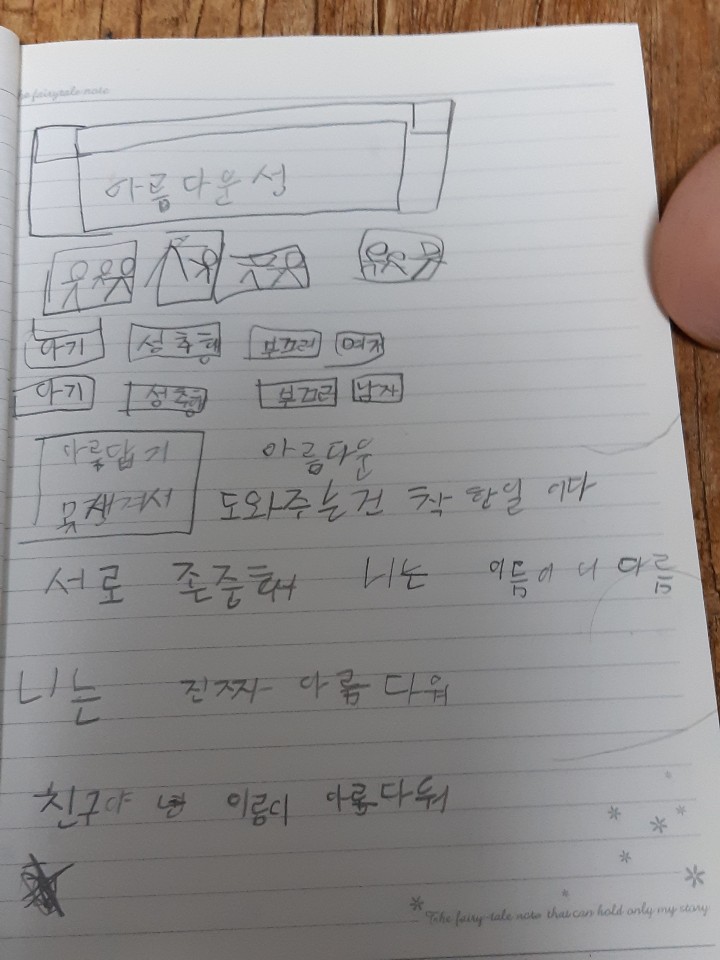 The fairytale note
아름다운 성
아기 성추행 부끄러 여자
아기 성추행 부끄러 남자
아름답기 아름다운
못생겨서 도와주는건 착한일 이다
서로 존중해 너는 이 다름
너는 진짜 아름다워
친구야 넌 이름이 아름다워
The fairy-tale note that can hold only my story